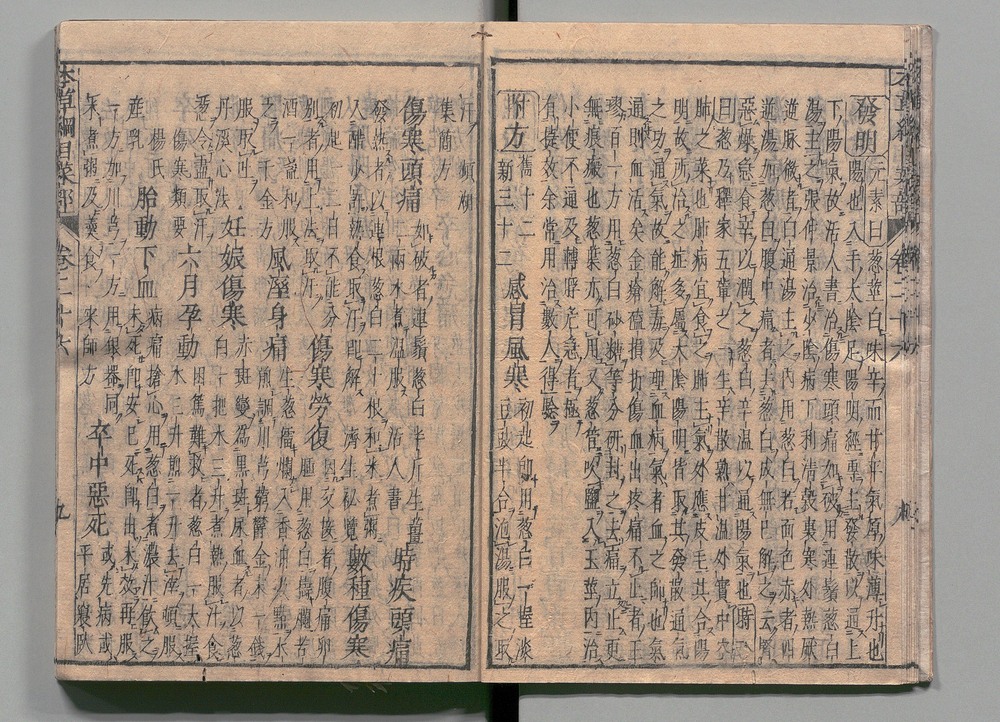 發明元素曰葱莖白味辛而甘平氣厚味薄升也
陽也入手太陰足陽明經專主發散以通上
下陽氣故活人書治傷寒頭痛如破用連鬚葱白
湯主之張仲景治少陰病下利清穀裏寒外熱厥
逆脉微者白通湯主之內用葱白若面色赤者四
逆湯加葱白腹中痛者去葱白成無己解之云腎
惡燥急食辛以潤之葱白辛溫以通陽氣也時珍
曰葱乃釋家五葷之一生辛散熟甘溫外實中空
肺之菜也肺病宜食之肺主氣外應皮毛其合陽
明故所治之症多屬太陰陽明皆取其發散通氣
之功通氣故能解毒及理血病氣者血之師也氣
通則血活矣金瘡磕損折傷血出疼痛不止者王
璆百一方用葱白砂糖等分研封之云痛立止更
無痕瘢也葱葉亦可用又葱管吹鹽入玉莖內治
小便不通及轉脬危急者極
有捷效余常用治數人得驗
附方舊十二新三十二 感冒風寒初起即用葱白一握淡
豆豉半合泡湯服之取
汗 瀕湖
集簡方
傷寒頭痛如破者連鬚葱白半斤生薑
二兩水煮溫服 活人書 時疾頭痛
發熱者以連根葱白二十根和米煮粥
入醋少許熱食取汗即解 濟生秘覽 數種傷寒
初起一二日不能分
別者用上法取汗 傷寒勞復因交接者腹痛卵
腫用葱白搗爛苦
酒一盞和服
之 千金方 風溼身痛生葱擂爛入香油數點水
煎調川芎藭鬱金末一錢
服取吐
丹溪心法 妊娠傷寒赤斑變爲黑斑尿血者以葱
白一把水三升煮熱服汁食
葱令盡取汗
傷寒類要 六月孕動困篤難救者葱白一大握
水三升煎一升去滓頓服
楊氏
產乳 胎動下血病痛搶心用葱白煮濃汁飲之
未死即安已死即出未效再服
一方加川芎一方用銀器同
米煮粥及羹食 梅師方 卒中惡死或先病或
平居寢臥
本草綱目菜部 卷二十六 九